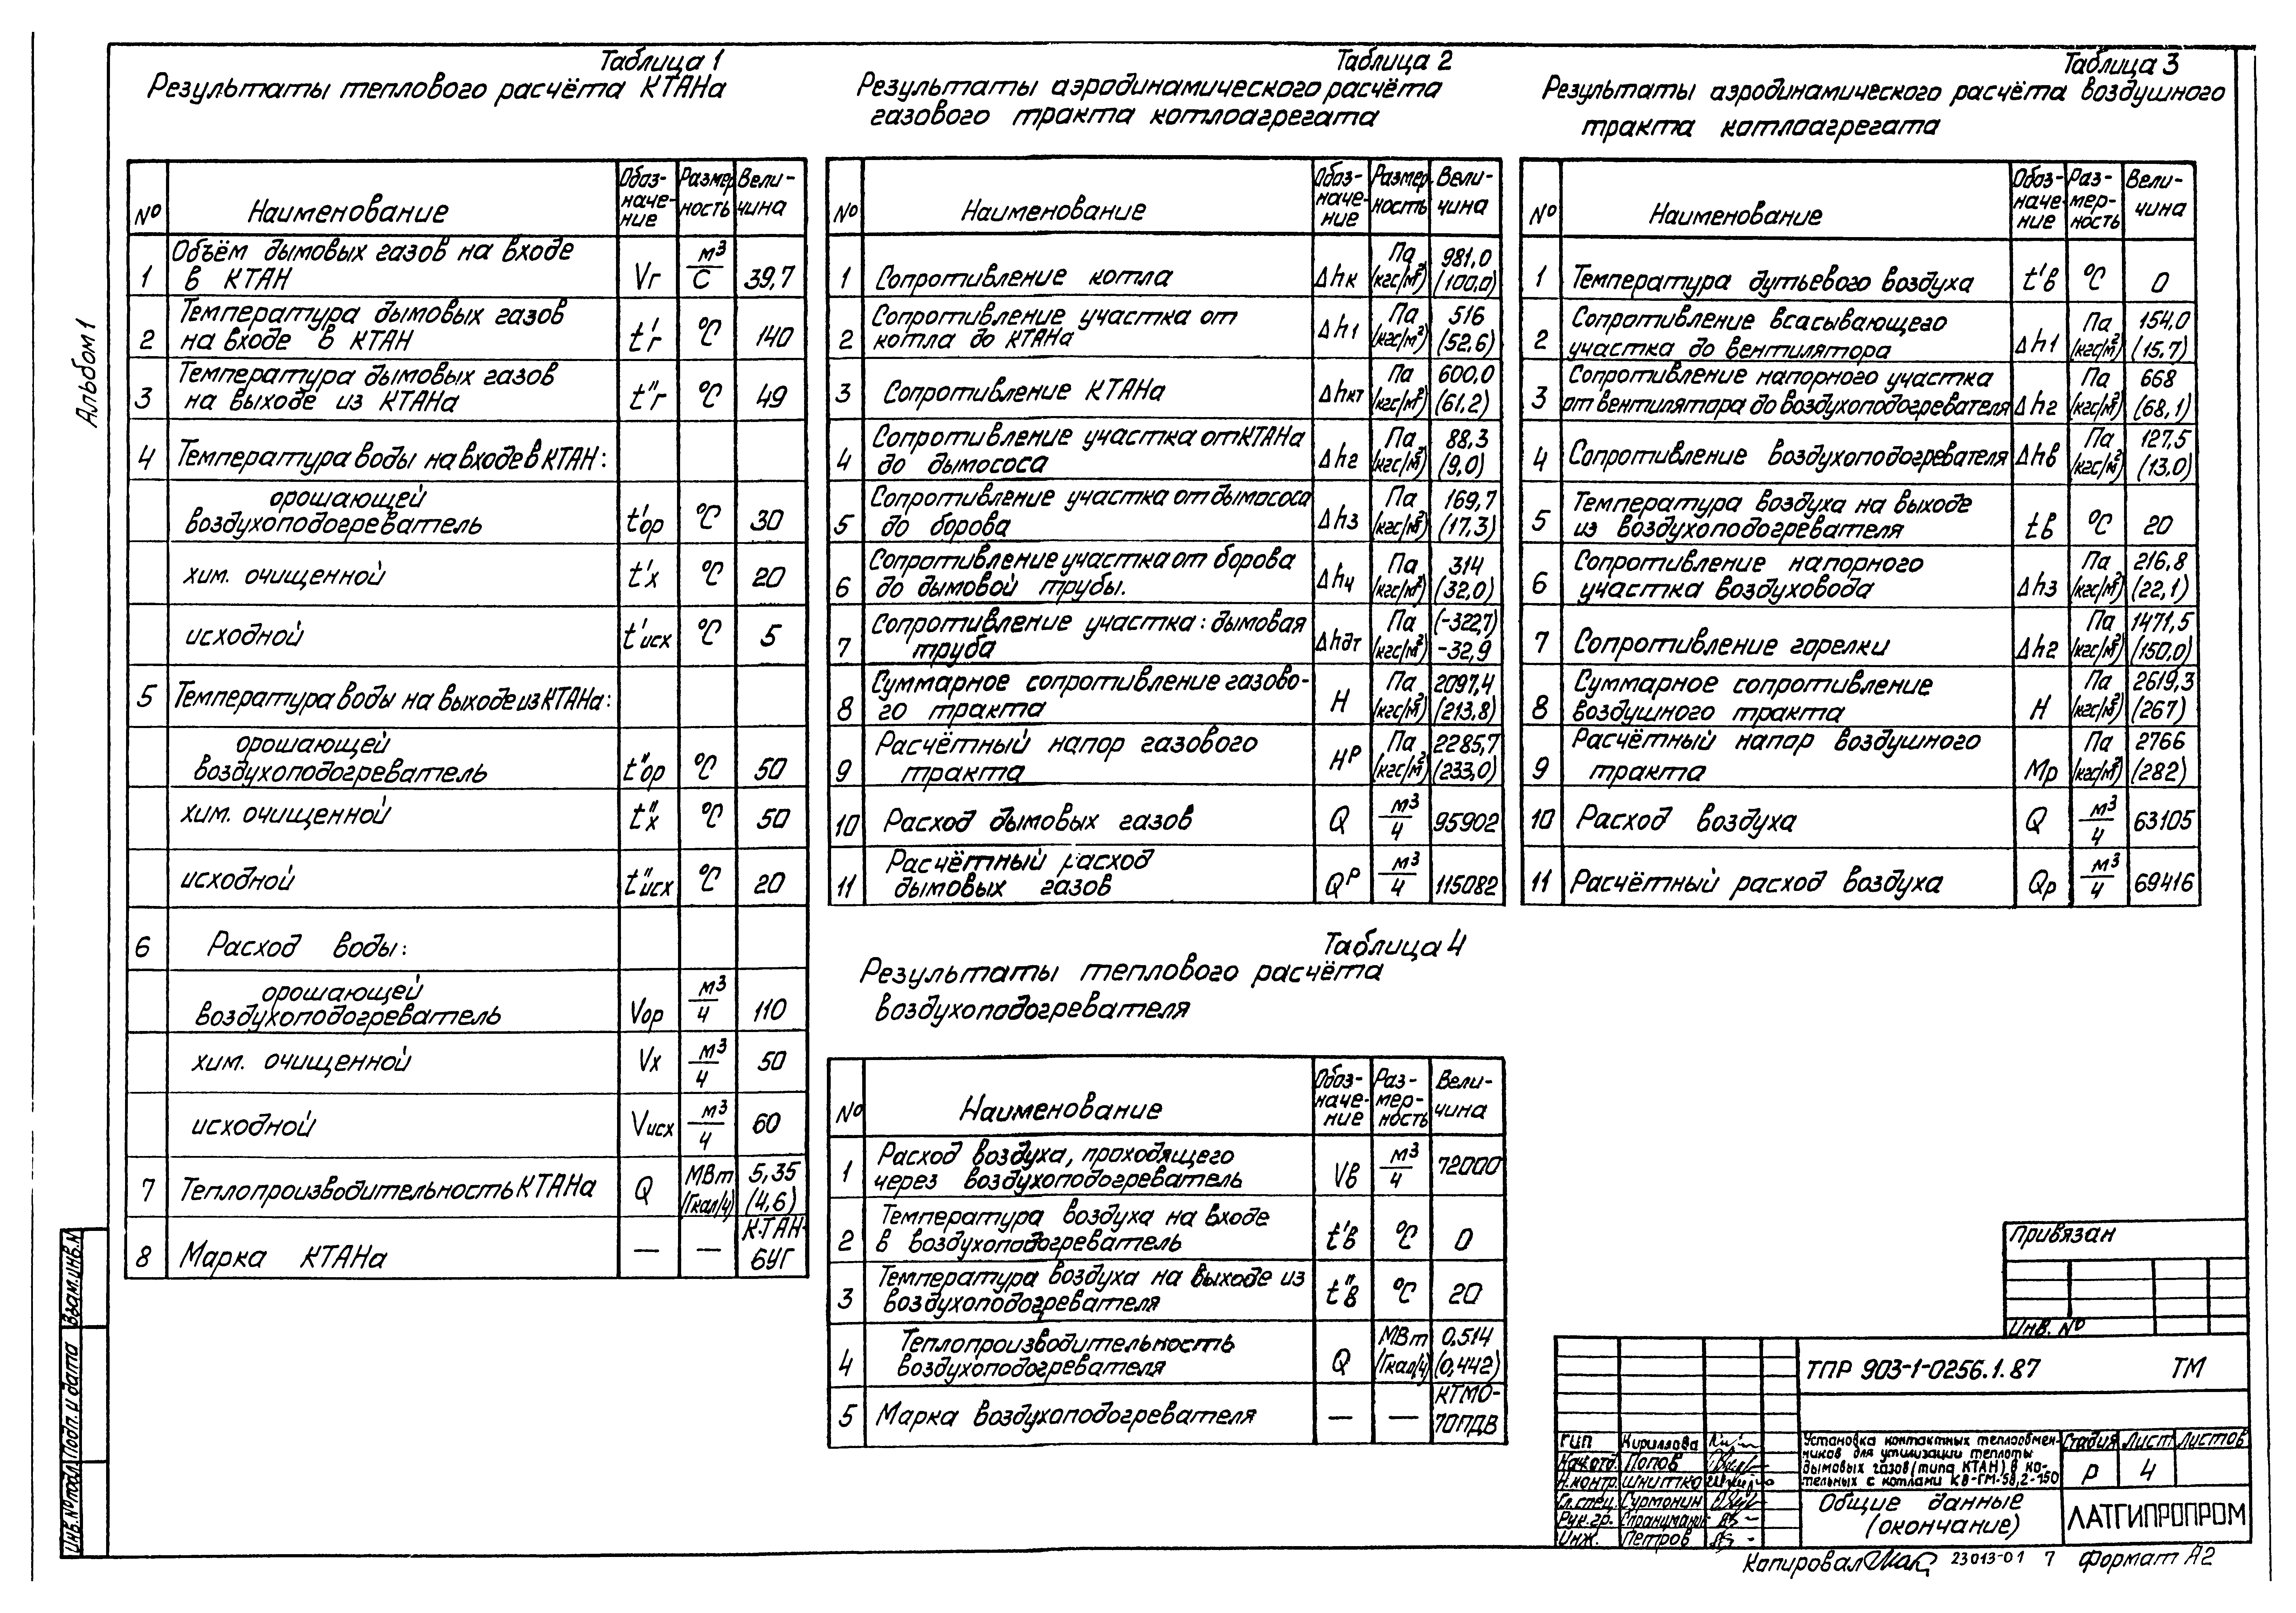 Альбом 1
Таблица 1
Результаты теплового расчёта КТАНа
№ Наименование Обоз-наче-ние Размерность Вели-чина
1 Объём дымовых газов на входе в КТАН Vг м³/с 39,7
2 Температура дымовых газов на входе в КТАН t'г °С 140
3 Температура дымовых газов на выходе из КТАНа t"г °С 49
4 Температура воды на входе в КТАН:
орошающей воздухоподогреватель t'ор °С 30
хим. очищенной t'х °С 20
исходной t'исх °С 5
5 Температура воды на выходе из КТАНа:
орошающей воздухоподогреватель t"ор °С 50
хим. очищенной t"х °С 50
исходной t"исх °С 20
6 Расход воды:
орошающей воздухоподогреватель Vор м³/ч 110
хим. очищенной Vх м³/ч 50
исходной Vисх м³/ч 60
7 Теплопроизводительность КТАНа Q МВт (Гкал/ч) 5,35 (4,6)
8 Марка КТАНа — — КТАН-6УГ
Таблица 2
Результаты аэродинамического расчёта
газового тракта котлоагрегата
№ Наименование Обоз-наче-ние Размерность Вели-чина
1 Сопротивление котла Δhк Па (кгс/м²) 981,0 (100,0)
2 Сопротивление участка от котла до КТАНа Δh1 Па (кгс/м²) 516 (52,6)
3 Сопротивление КТАНа Δhкт Па (кгс/м²) 600,0 (61,2)
4 Сопротивление участка от КТАНа до дымососа Δh2 Па (кгс/м²) 88,3 (9,0)
5 Сопротивление участка от дымососа до борова Δh3 Па (кгс/м²) 169,7 (17,3)
6 Сопротивление участка от борова до дымовой трубы. Δh4 Па (кгс/м²) 314 (32,0)
7 Сопротивление участка: дымовая труба Δhдт Па (кгс/м²) (-322,7) -32,9
8 Суммарное сопротивление газово-го тракта Н Па (кгс/м²) 2097,4 (213,8)
9 Расчётный напор газового тракта Нр Па (кгс/м²) 2285,7 (233,0)
10 Расход дымовых газов Q м³/ч 95902
11 Расчётный расход дымовых газов Qр м³/ч 115082
Таблица 3
Результаты аэродинамического расчёта воздушного
тракта котлоагрегата
№ Наименование Обоз-наче-ние Раз-мер-ность Вели-чина
1 Температура дутьевого воздуха t'в °С 0
2 Сопротивление всасывающего участка до вентилятора Δh1 Па (кгс/м²) 154,0 (15,7)
3 Сопротивление напорного участка от вентилятора до воздухоподогревателя Δh2 Па (кгс/м²) 668 (68,1)
4 Сопротивление воздухоподогревателя Δhв Па (кгс/м²) 127,5 (13,0)
5 Температура воздуха на выходе из воздухоподогревателя tв °С 20
6 Сопротивление напорного участка воздуховода Δh3 Па (кгс/м²) 216,8 (22,1)
7 Сопротивление горелки Δhг Па (кгс/м²) 1471,5 (150,0)
8 Суммарное сопротивление воздушного тракта Н Па (кгс/м²) 2619,3 (267)
9 Расчётный напор воздушного тракта Мр Па (кгс/м²) 2766 (282)
10 Расход воздуха Q м³/ч 63105
11 Расчётный расход воздуха Qр м³/ч 69416
Таблица 4
Результаты теплового расчёта
воздухоподогревателя
№ Наименование Обоз-наче-ние Раз-мер-ность Вели-чина
1 Расход воздуха, проходящего через воздухоподогреватель Vв м³/ч 72000
2 Температура воздуха на входе в воздухоподогреватель t'в °С 0
3 Температура воздуха на выходе из воздухоподогревателя t"в °С 20
4 Теплопроизводительность воздухоподогревателя Q МВт (Гкал/ч) 0,514 (0,442)
5 Марка воздухоподогревателя — — КТМО-70ПДВ
Привязан
Инв. №
ТПР 903-1-0256.1.87 ТМ
ГИП Кириллова
Нач.отд. Попов
Н.контр. Шнитко
Гл.спец. Сурмонин
Рук.гр.
Инж. Петров
Установка контактных теплообмен-
ников для утилизации теплоты
дымовых газов (типа КТАН) в ко-
тельных с котлами КВ-ГМ-58,2-150
Стадия Лист Листов
Р 4
Общие данные
(окончание)
ЛАТГИПРОПРОМ
Копировал 23013-01 7 Формат А2
Взам.инв.№
Подп. и дата
Инв.№ подл.